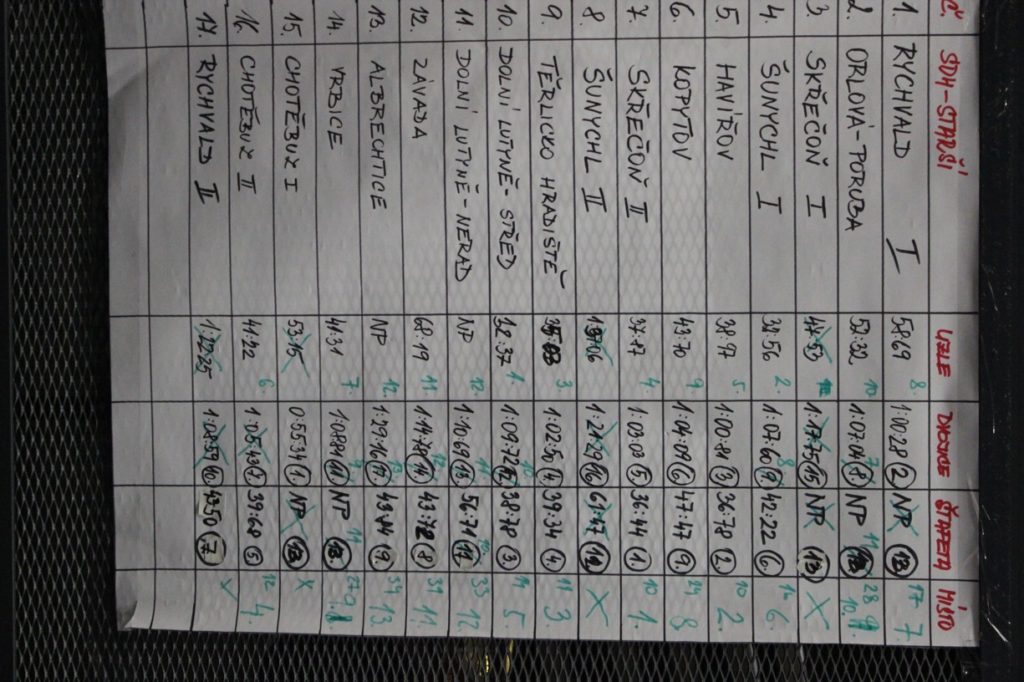 Č. SDH-STARŠÍ UZLE DVOJICE ŠTAFETA MÍSTO
1. RYCHVALD I 58:69 8. 1:00:28 2 NP 13 17 7
2. ORLOVÁ-PORUBA 52:32 10 1:07:04 8 7 NP 11 28 10. 9
3. SKŘEČOŇ I 44:53 1:17:75 15 NP 13 X
4. ŠUNYCHL I 32:56 2. 1:07:60 9 8 42:22 6. 16 6
5. HAVÍŘOV 38:97 5. 1:00:84 3 36:78 2. 10 2.
6. KOPYTOV 43:70 9 1:04:09 6 47:47 9. 24 8
7. SKŘEČOŇ II 37:17 4 1:03:03 5 36:44 1. 10 1.
8. ŠUNYCHL II 1:37:06 1:21:29 16 61:47 12 X
9. TĚRLICKO HRADIŠTĚ 35:03 3 1:02:50 4. 39:34 4. 11 3.
10. DOLNÍ LUTYNĚ-STŘED 32:37 1. 1:09:72 12 10 38:78 3. 14 5
11. DOLNÍ LUTYNĚ-NERAD NP 12. 1:10:69 13. 11 56:71 11 10. 33 12.
12. ZÁVADA 68:19 11. 1:14:78 14. 12 43:78 8 39 11.
13. ALBRECHTICE NP 12. 1:29:16 17. 13 43:44 9. 34 13
14. VRBICE 41:31 7 1:08:84 11 9. NP 13. 11 27 9.
15. CHOTĚBUZ I 53:15 0:55:34 1. NP 13 X
16. CHOTĚBUZ II 41:42 6. 1:05:43 7. 39:68 5 12 4.
17. RYCHVALD II 1:22:25 1:08:59 10. 43:50 7.